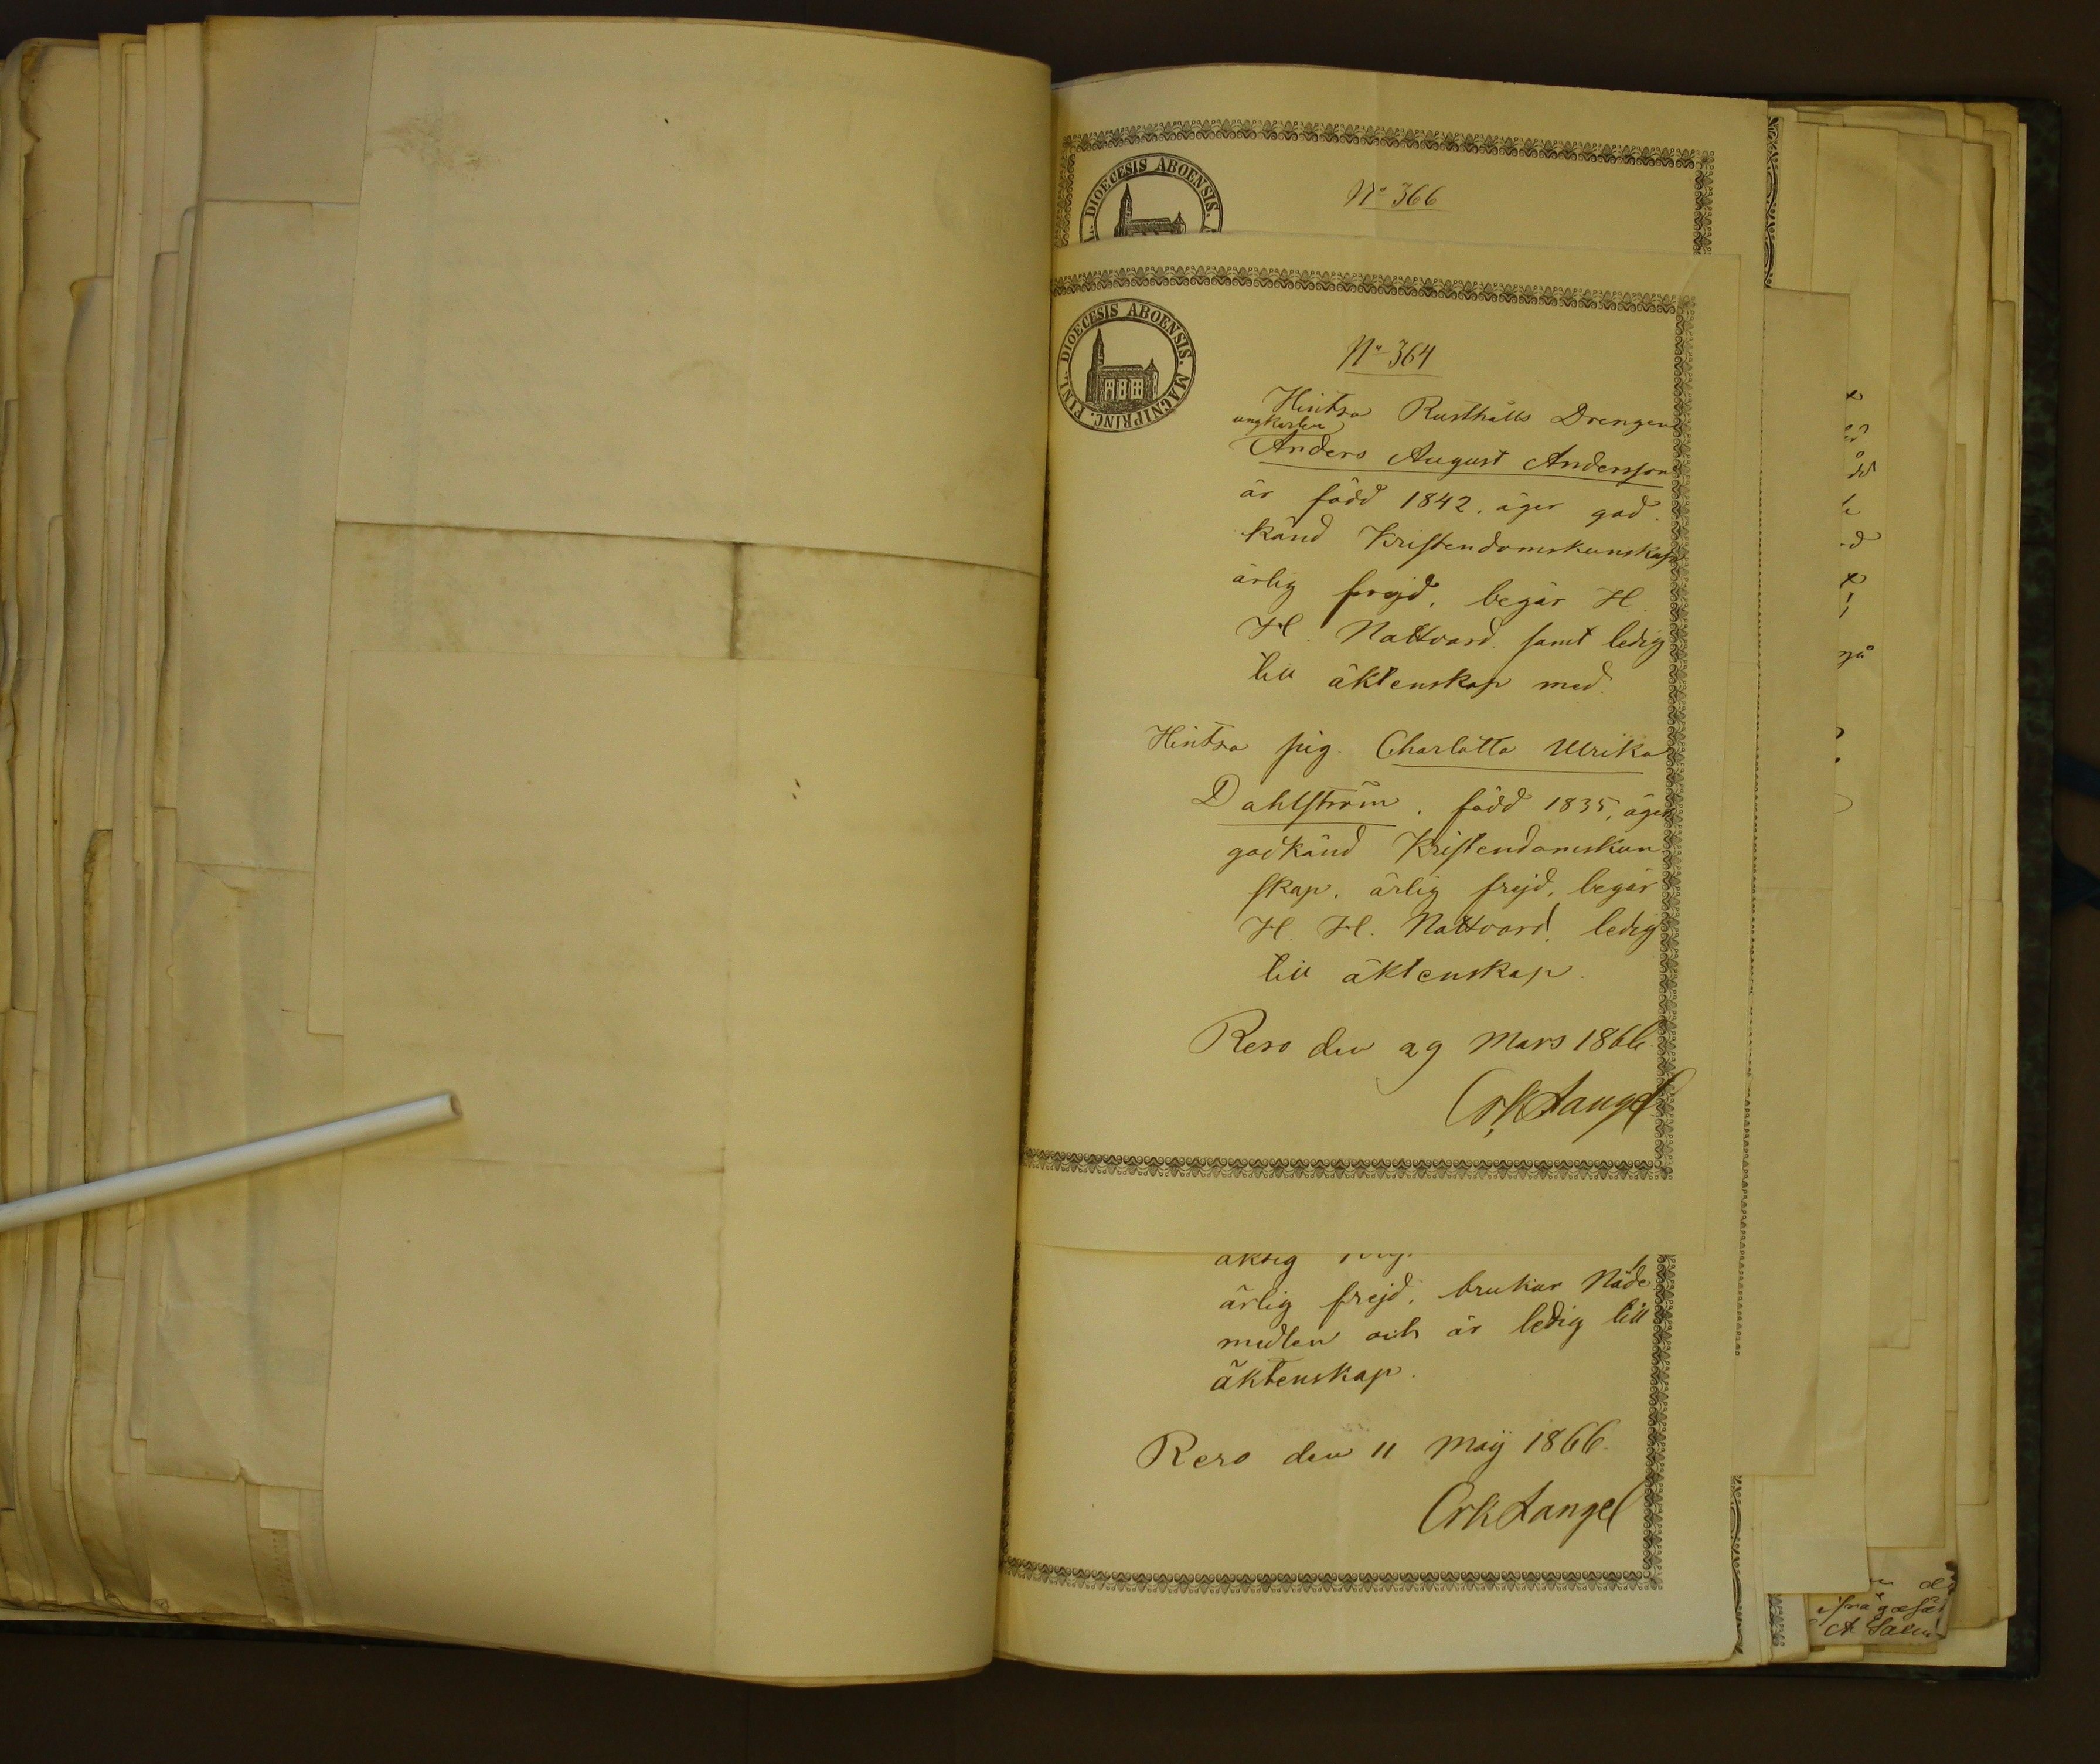 DIOECESIS ABOENSIS.
Nº 366
FINL. DIOECESIS ABOENSIS. MAGNIPRINC.
Nº 364
Hintsa Rusthålls Drengen
ungkarlen
Anders August Andersson
är född 1842, äger god
känd Kristendomskunskap
ärlig frejd, begår H.
H. Nattvard samt ledig
till äktenskap med
Hintsa pig. Charlotta Ulrika
Dahlström, född 1835, äger
godkänd Kristendomskun
skap, ärlig frejd, begår
H. H. Nattvard, ledig
till äktenskap.
Reso den 29 Mars 1866
ärlig frejd, brukar Nåde
medlen och är ledig till
äktenskap.
Reso den 11 Maij 1866.